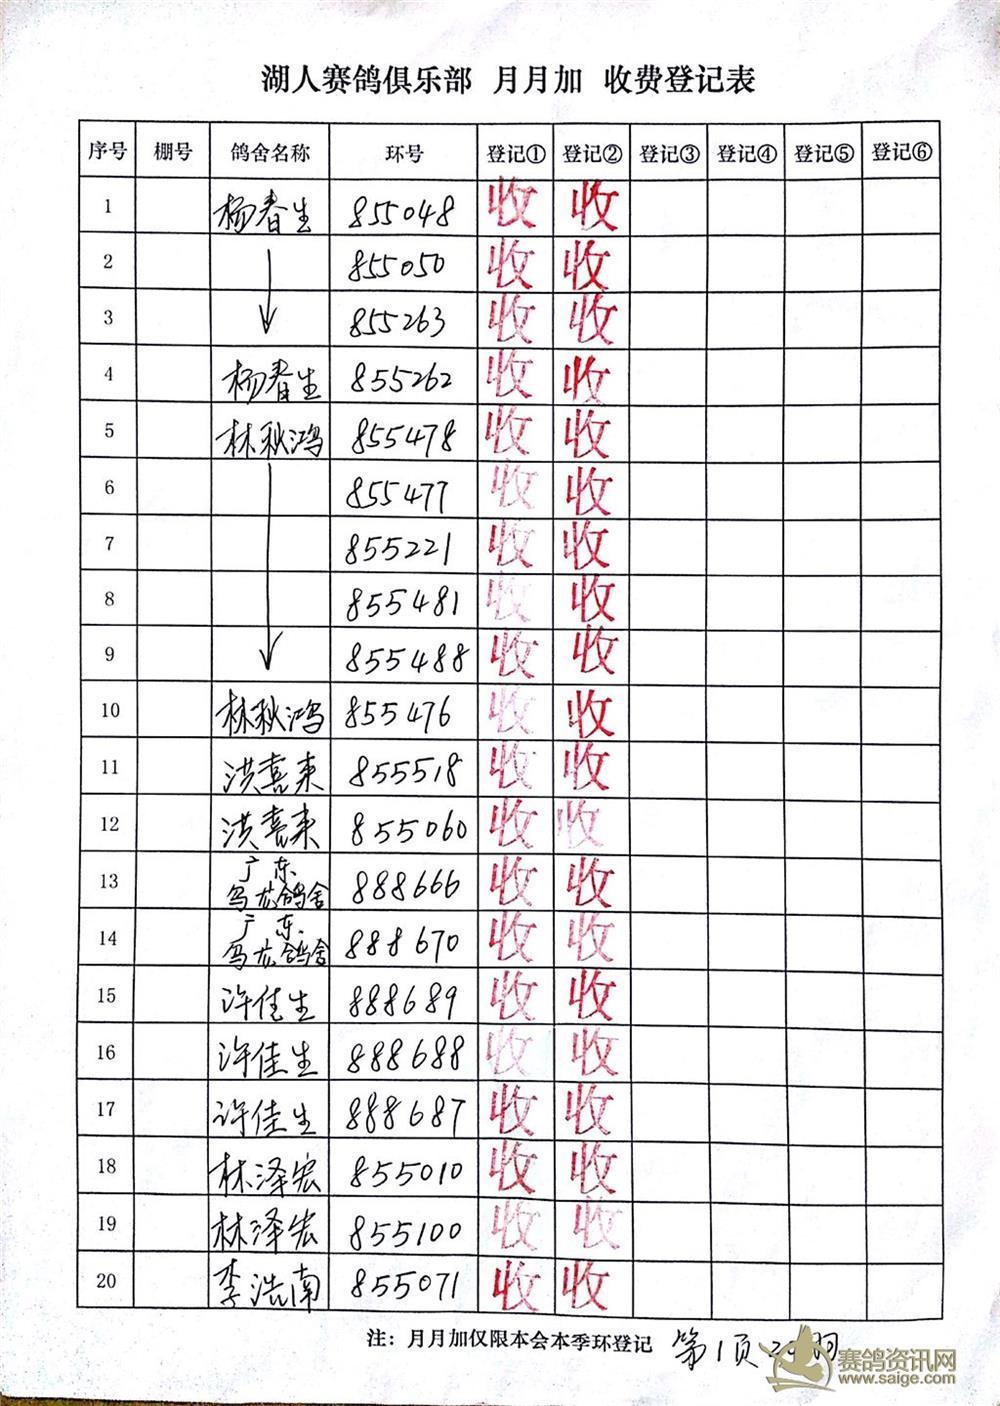 湖人赛鸽俱乐部 月月加 收费登记表
序号 棚号 鸽舍名称 环号 登记① 登记② 登记③ 登记④ 登记⑤ 登记⑥
1 杨春生 855048 收 收
2 855050 收 收
3 855263 收 收
4 杨春生 855262 收 收
5 林秋鸿 855478 收 收
6 855477 收 收
7 855221 收 收
8 855481 收 收
9 855488 收 收
10 林秋鸿 855476 收 收
11 洪喜来 855518 收 收
12 洪喜来 855060 收 收
13 广东 乌龙鸽舍 888666 收 收
14 广东 乌龙鸽舍 888670 收 收
15 许佳生 888689 收 收
16 许佳生 888688 收 收
17 许佳生 888687 收 收
18 林泽宏 855010 收 收
19 林泽宏 855100 收 收
20 李浩南 855071 收 收
注：月月加仅限本会本季环登记 第1页
赛鸽资讯网
www.saige.com